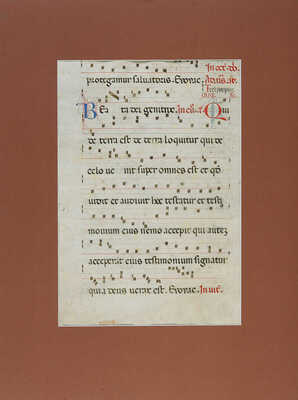 protegamur salvatoris. Evovae.
BEata dei genitrix. Qui
de terra est de terra loquitur qui de
celo venit super omnes est et qđ
vidit et audivit hoc testatur et testi
monium eius nemo accepit qui autez
acceperit eius testimonium signavit
quia deus verax est. Evovae. In